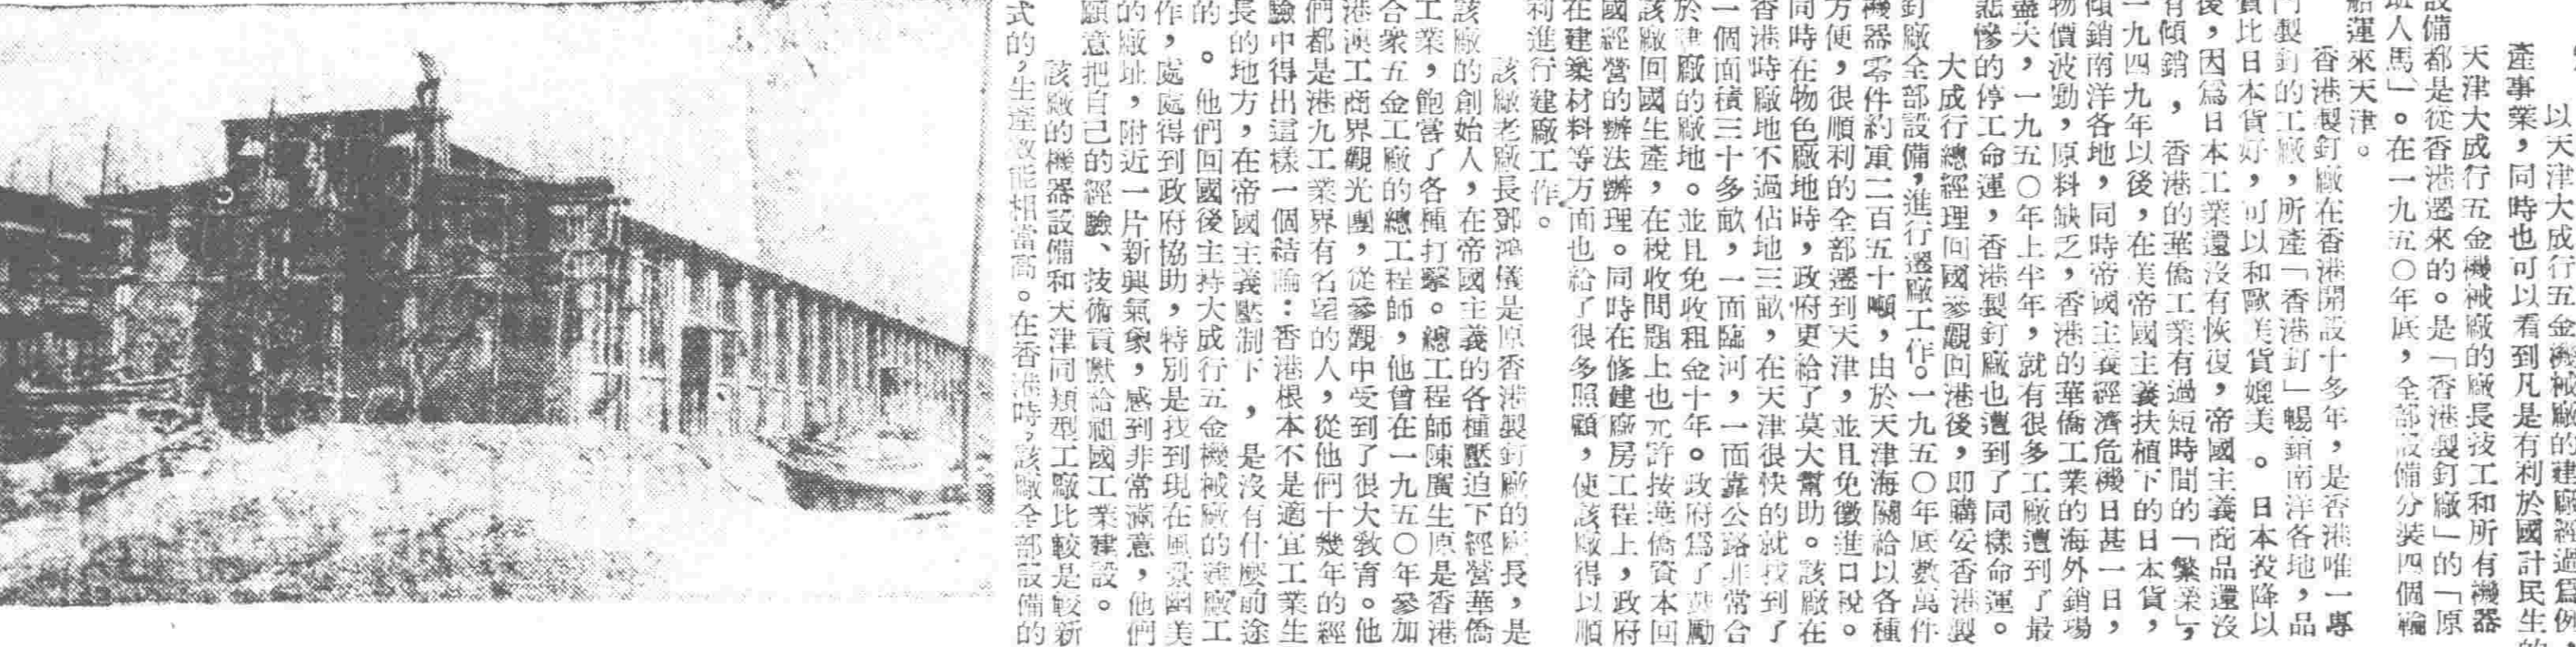 以天津大成行五金機械廠的建廠經過爲例，
產事業，同時也可以看到凡是有利於國計民生的
天津大成行五金機械廠的廠長技工和所有機器
設備都是從香港遷來的。是「香港製釘廠」的「原
班人馬」。在一九五〇年底，全部設備分裝四個輪
船運來天津。
香港製釘廠在香港開設十多年，是香港唯一專
門製釘的工廠，所產「香港釘」暢銷南洋各地，品
質比日本貨好，可以和歐美貨媲美。日本投降以
後，因爲日本工業還沒有恢復，帝國主義商品還沒
有傾銷，香港的華僑工業有過短時間的「繁榮」，
一九四九年以後，在美帝國主義扶植下的日本貨，
傾銷南洋各地，同時帝國主義經濟危機日甚一日，
物價波動，原料缺乏，香港的華僑工業的海外銷場
盡失，一九五〇年上半年，就有很多工廠遭到了最
悲慘的停工命運，香港製釘廠也遭到了同樣命運。
大成行總經理回國參觀回港後，即購妥香港製
釘廠全部設備，進行遷廠工作。一九五〇年底數萬件
機器零件約重二百五十噸，由於天津海關給以各種
方便，很順利的全部遷到天津，並且免徵進口稅。
同時在物色廠地時，政府更給了莫大幫助。該廠在
香港時廠地不過佔地三畝，在天津很快的就找到了
一個面積三十多畝，一面臨河，一面靠公路非常合
於建廠的廠地。並且免收租金十年。政府爲了鼓勵
該廠回國生產，在稅收問題上也允許按華僑資本回
國經營的辦法辦理。同時在修建廠房工程上，政府
在建築材料等方面也給了很多照顧，使該廠得以順
利進行建廠工作。
該廠老廠長鄧鴻儀是原香港製釘廠的廠長，是
該廠的創始人，在帝國主義的各種壓迫下經營華僑
工業，飽嘗了各種打擊。總工程師陳廣生原是香港
合衆五金工廠的總工程師，他曾在一九五〇年參加
港澳工商界觀光團，從參觀中受到了很大教育。他
們都是港九工業界有名望的人，從他們十幾年的經
驗中得出這樣一個結論：香港根本不是適宜工業生
長的地方，在帝國主義壓制下，是沒有什麼前途
的。他們回國後主持大成行五金機械廠的建廠工
作，處處得到政府協助，特別是找到現在風景幽美
的廠址，附近一片新興氣象，感到非常滿意，他們
願意把自己的經驗、技術貢獻給祖國工業建設。
該廠的機器設備和天津同類型工廠比較是較新
式的，生產效能相當高。在香港時，該廠全部設備的